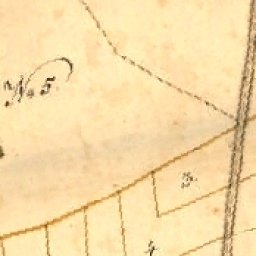 No 5.
3.
4